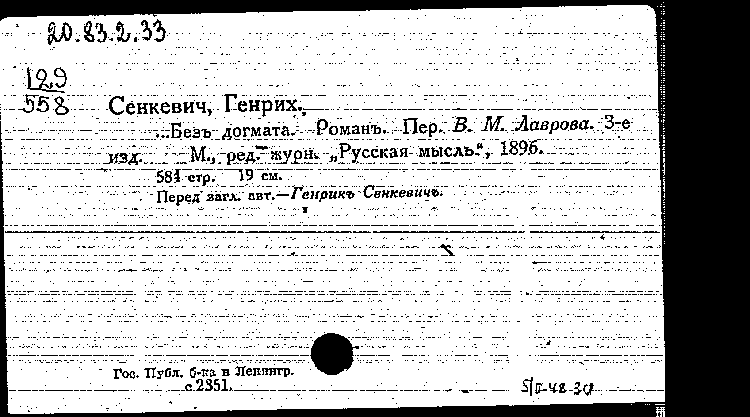 20.83.2.33
129
558
Сенкевич, Генрих.
...Безъ догмата. Романъ. Пер. В. М. Лаврова. 3-е
изд. М., ред. журн. „Русская мысль“, 1896.
581 стр. 19 см.
Перед загл. авт.—Генрикъ Сенкевичъ.
Гос. Публ. б-ка в Ленингр.
с.2351.